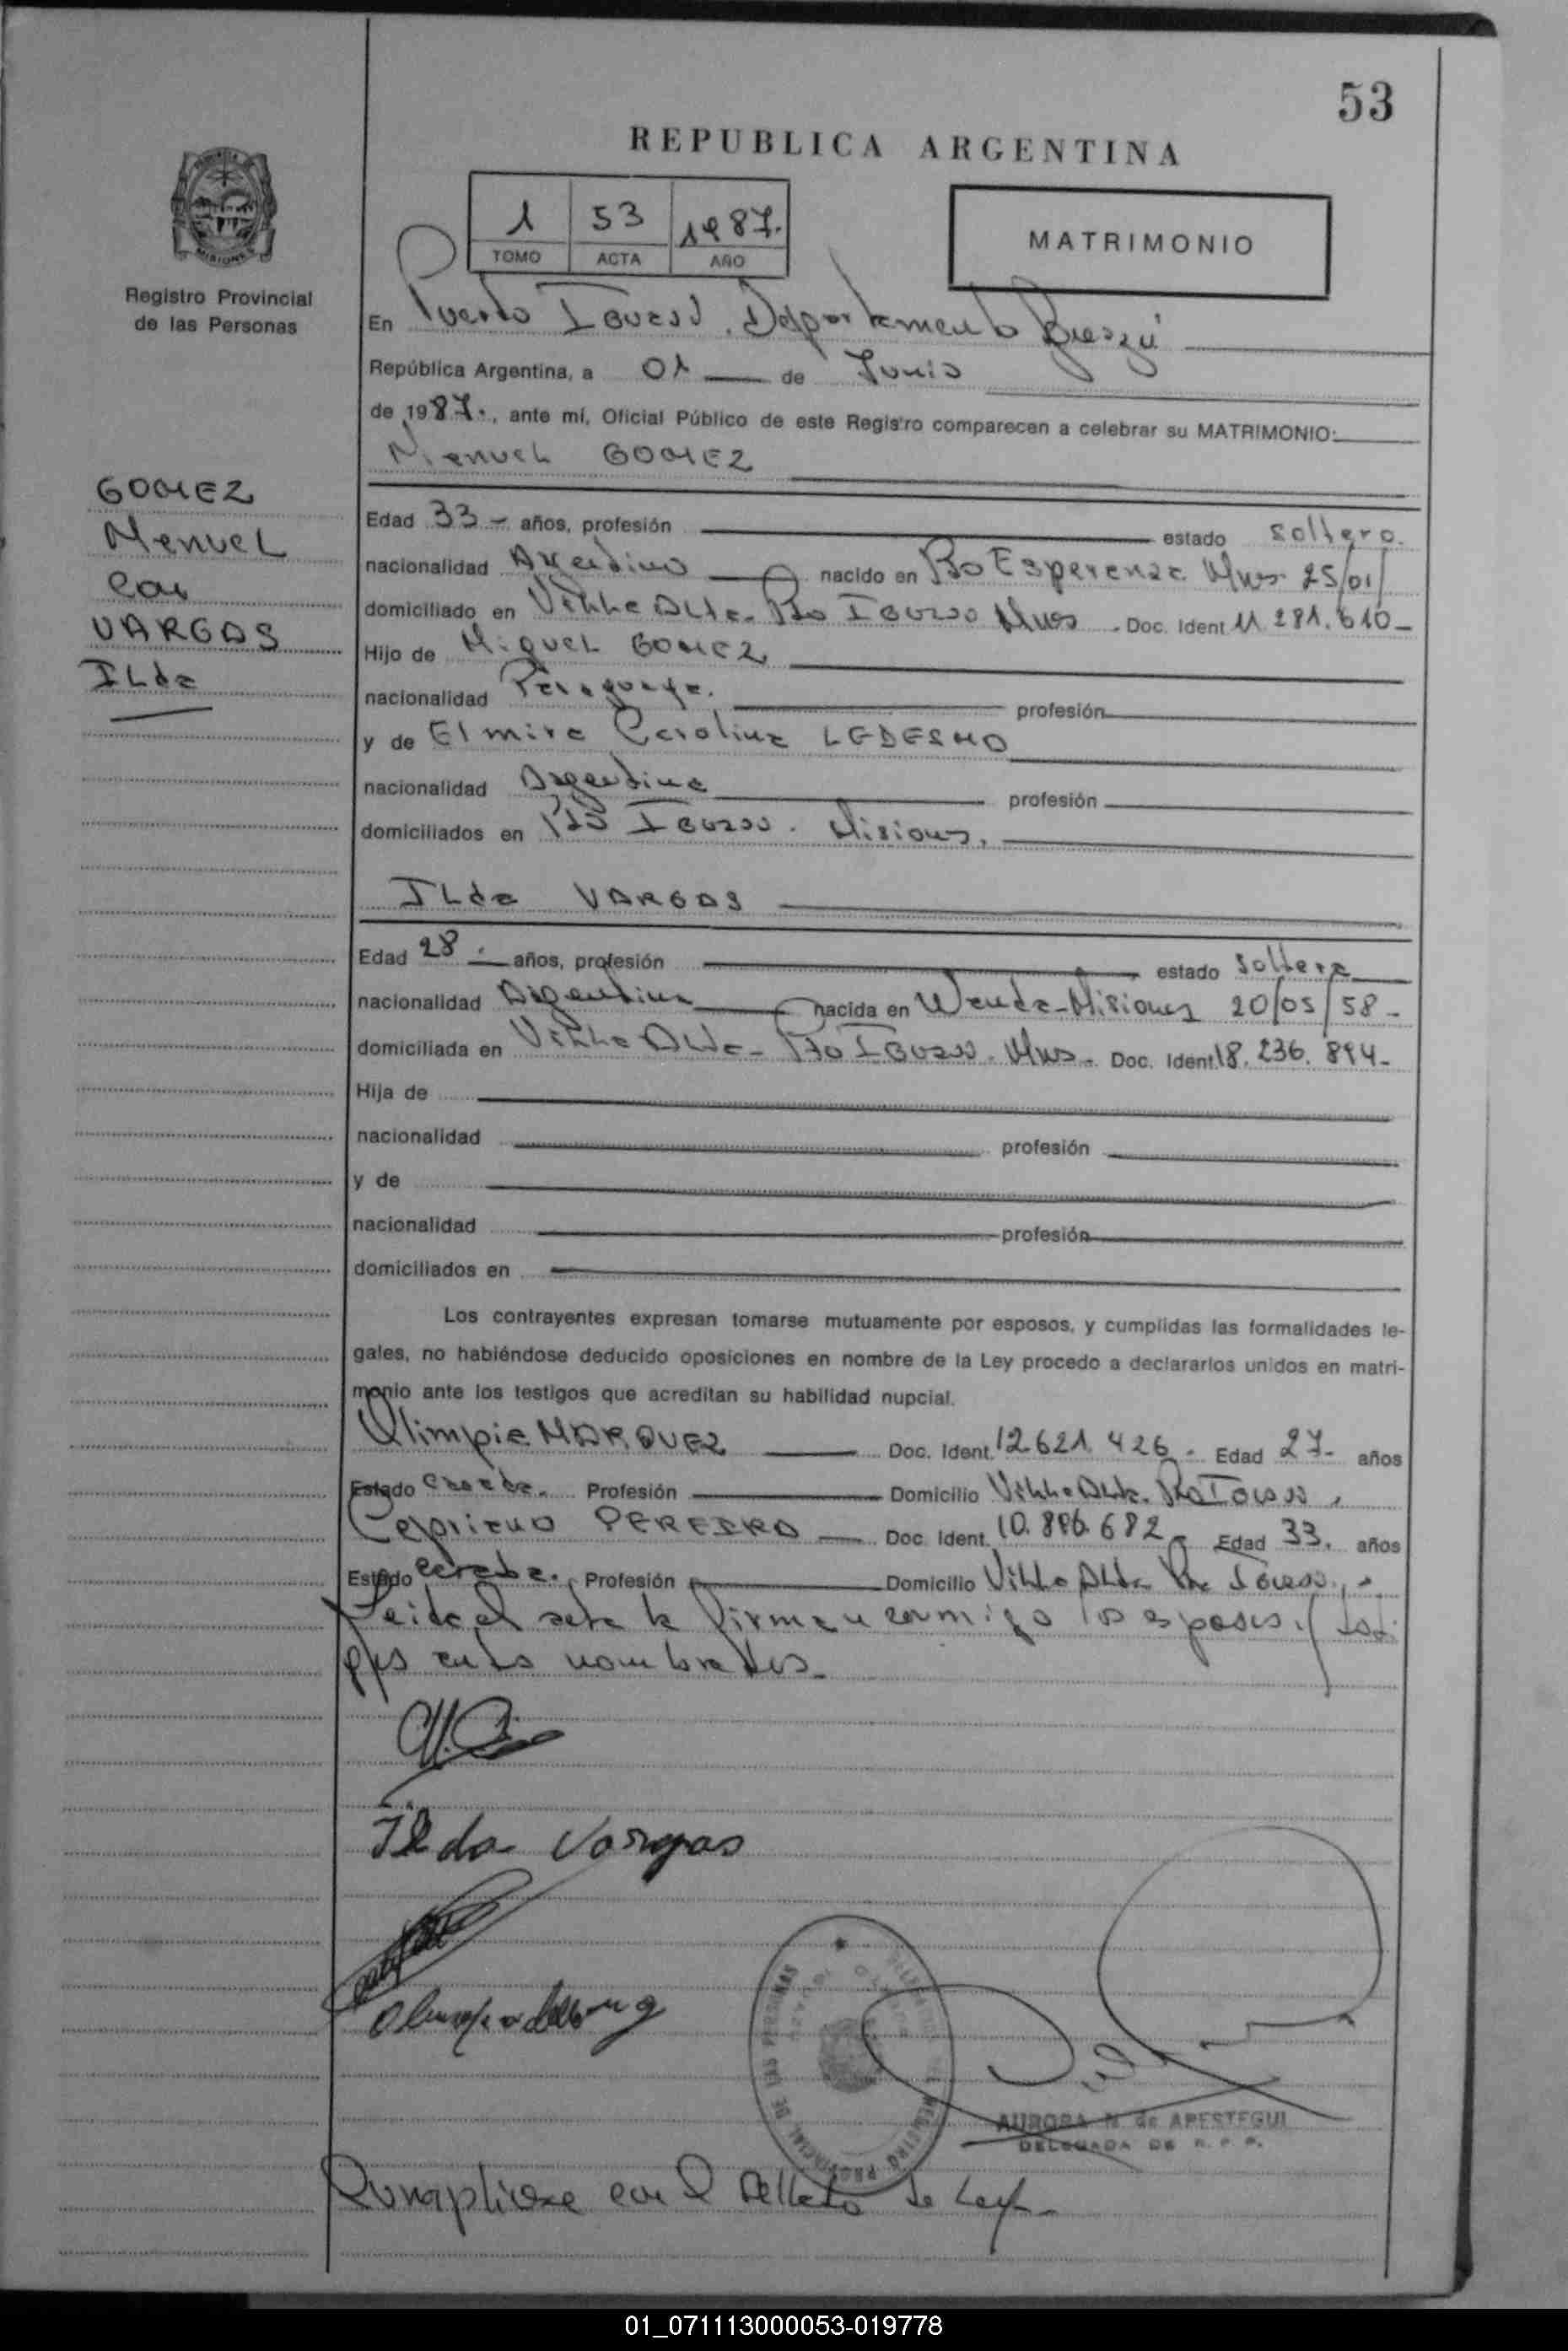 53
REPUBLICA ARGENTINA
1 53 1987.
TOMO ACTA AÑO
MATRIMONIO
MISIONES
Registro Provincial
de las Personas
En Puerto Iguazú. Departamento Iguazú
República Argentina, a 01 de Junio
de 1987., ante mí, Oficial Público de este Registro comparecen a celebrar su MATRIMONIO:
Manuel GOMEZ
GOMEZ
Manuel
con
VARGAS
ILda
Edad 33 - años, profesión estado soltero.
nacionalidad Argentino nacido en Pto Esperanza Mnes 25/01/
domiciliado en Villa Alta - Pto Iguazú Mnes. Doc. Ident 11.281.610-
Hijo de Miguel GOMEZ
nacionalidad Paraguaya. profesión
y de Elmira Carolina LEDESMA
nacionalidad Argentina profesión
domiciliados en Pto Iguazú. Misiones.
ILda VARGAS
Edad 28. años, profesión estado soltera
nacionalidad Argentina nacida en Wanda-Misiones 20/05/58-
domiciliada en Villa Alta - Pto Iguazú. Mnes. Doc. Ident. 18.236.894-
Hija de
nacionalidad profesión
y de
nacionalidad profesión
domiciliados en
Los contrayentes expresan tomarse mutuamente por esposos, y cumplidas las formalidades le-
gales, no habiéndose deducido oposiciones en nombre de la Ley procedo a declararlos unidos en matri-
monio ante los testigos que acreditan su habilidad nupcial.
Olimpia MARQUEZ Doc. Ident. 12.621.426. Edad 27- años
Estado casada. Profesión Domicilio Villa Alta. Pto Iguazú.
Cipriano PEREIRA Doc. Ident. 10.896.682- Edad 33. años
Estado Profesión Domicilio Villa Alta Pto Iguazú.
Leida el acta la firman conmigo los esposos y testi
gos en ella nombrados.
Ilda Vargas
REGISTRO PROVINCIAL DE LAS PERSONAS
AURORA N. de APESTEGUI
DELEGADA DE R. P. P.
Cumpliose con el sellado de Ley-
01_071113000053-019778